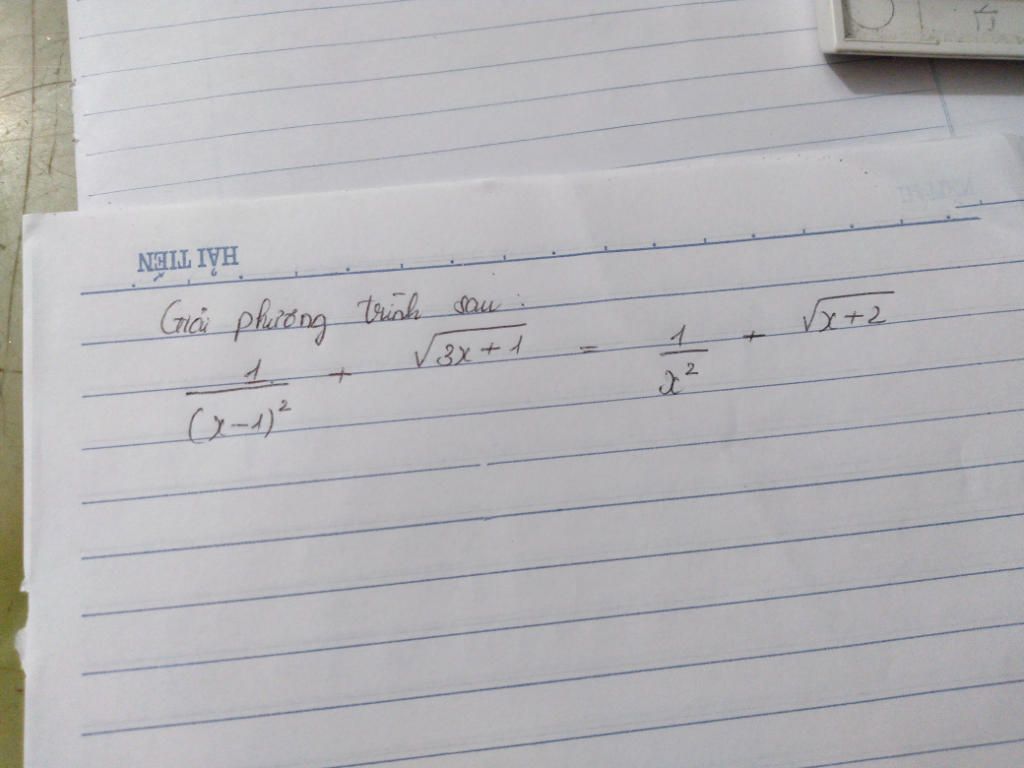 HẢI TIẾN
Giải phương trình sau :
1/(x-1)² + √(3x+1) = 1/x² + √(x+2)